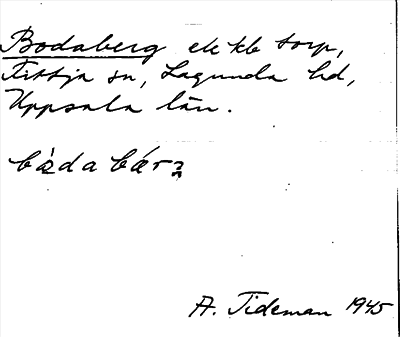 Bodaberg ek kb torp,
Fittja sn, Lagunda hd,
Uppsala län.
A. Tideman 1945